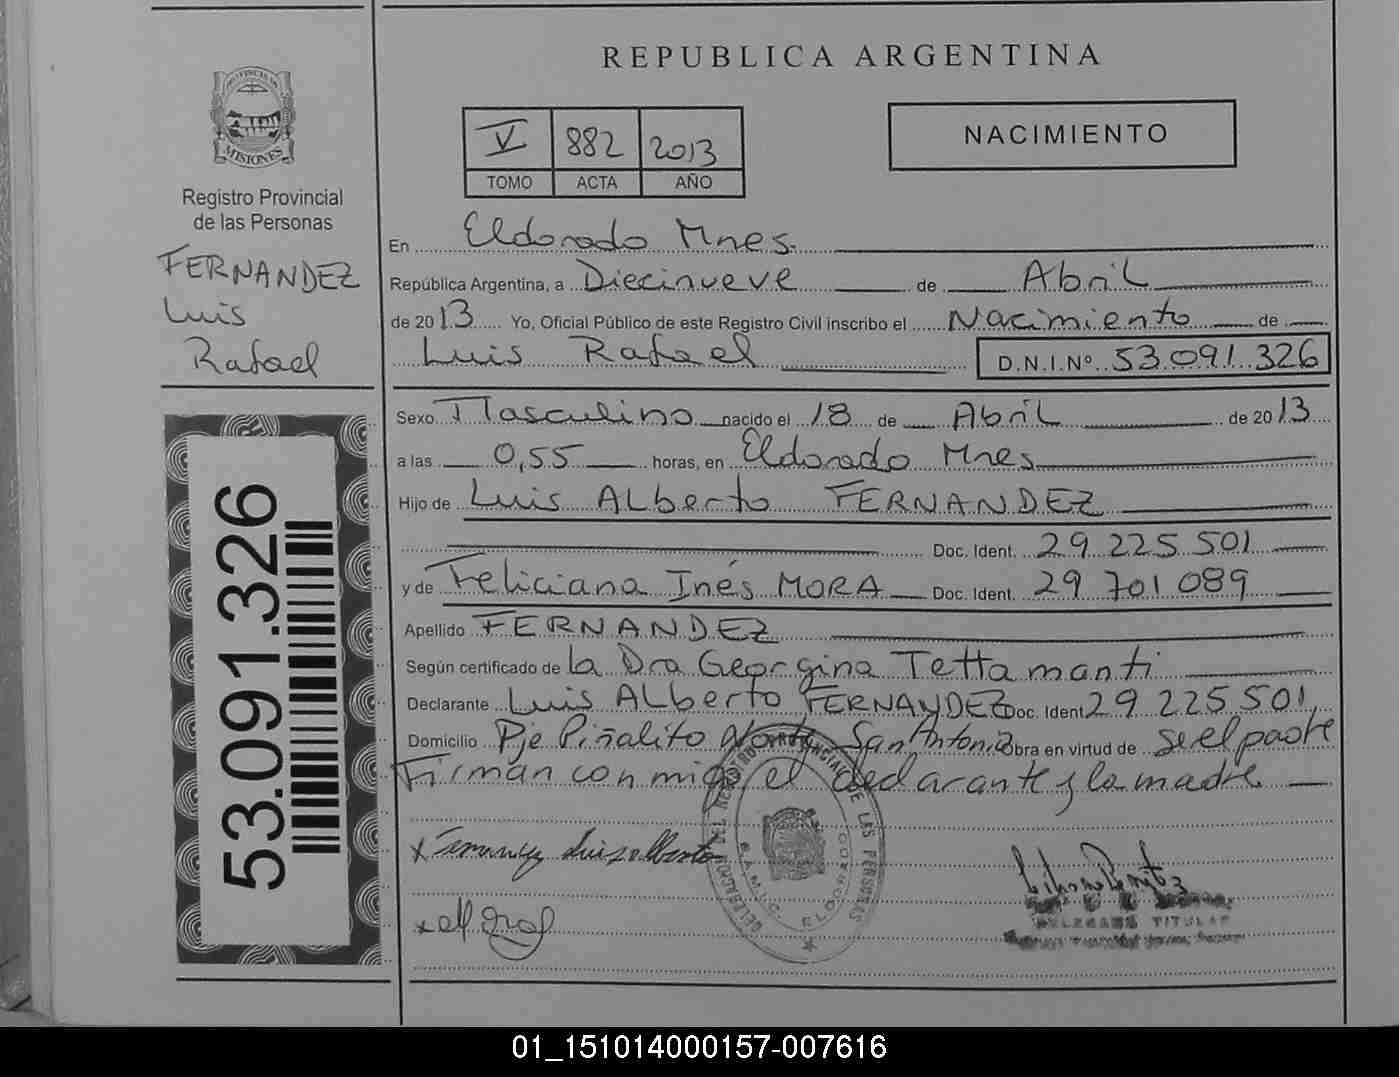 REPUBLICA ARGENTINA
PROVINCIA DE
MISIONES
Registro Provincial
de las Personas
FERNANDEZ
Luis
Rafael
53.091.326
V 882 2013
TOMO ACTA AÑO
NACIMIENTO
En Eldorado Mnes.
República Argentina, a Diecinueve de Abril
de 2013 Yo, Oficial Público de este Registro Civil inscribo el Nacimiento de
Luis Rafael D.N.I.Nº 53.091.326
Sexo Masculino nacido el 18 de Abril de 2013
a las 0,55 horas, en Eldorado Mnes
Hijo de Luis Alberto FERNANDEZ
Doc. Ident. 29 225 501
y de Feliciana Inés MORA Doc. Ident. 29 701 089
Apellido FERNANDEZ
Según certificado de la Dra Georgina Tettamanti
Declarante Luis Alberto FERNANDEZ Doc. Ident 29 225 501
Domicilio Pje Piñalito Norte San Antonio obra en virtud de ser el padre
Firman conmigo el declarante y la madre
x Fernandez Luis Alberto
x
DELEGACION DEL REGISTRO PROVINCIAL DE LAS PERSONAS
S.A.M.I.C. ELDORADO
TITULAR
01_151014000157-007616